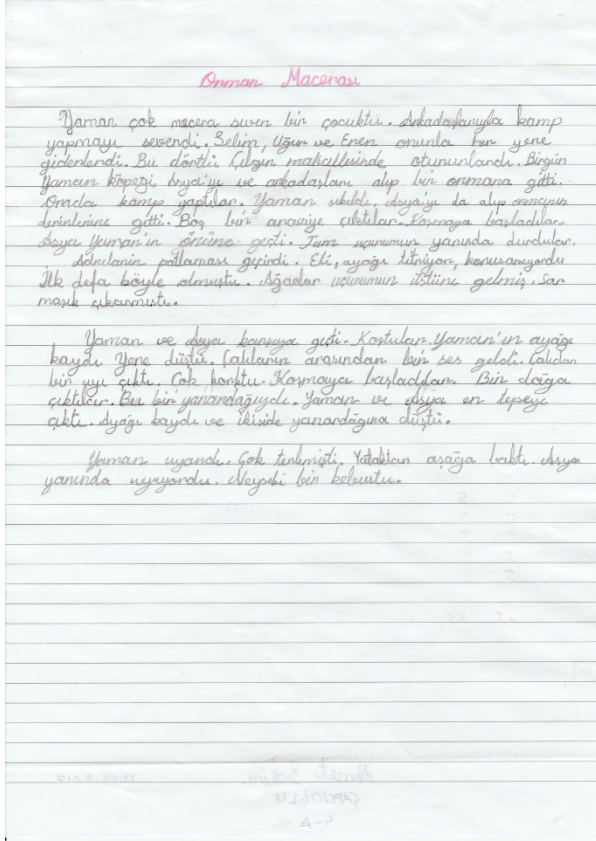 Orman Macerası
Yaman çok macera seven bir çocuktu. Arkadaşlarıyla kamp
yapmayı severdi. Selim, Uğur ve Eren onunla her yere
giderlerdi. Bu dörtlü Çılgın mahallesinde otururlardı. Birgün
Yaman köpeği Asya'yı ve arkadaşları alıp bir ormana gitti.
Orada kamp yaptılar. Yaman sıkıldı. Asya'yı da alıp ormanın
derinlerine gitti. Boş bir araziye çıktılar. Koşmaya başladılar.
Asya Yaman'ın önüne geçti. Tam uçurumun yanında durdular.
Adrelanin patlaması geçirdi. Eli, ayağı titriyor, konuşamıyordu
İlk defa böyle olmuştu. Ağaçlar uçurumun üstüne gelmiş. Sar
maşık çıkarmıştı.
Yaman ve Asya karşıya geçti. Koştular. Yaman'ın ayağı
kaydı Yere düştü. Çalıların arasından bir ses geldi. Çalıdan
bir ayı çıktı. Çok korktu. Koşmaya başladılar. Bir dağa
çıktılar. Bu bir yanardağıydı. Yaman ve Asya en tepeye
çıktı. Ayağı kaydı ve ikiside yanardağına düştü.
Yaman uyandı. Çok terlemişti. Yataktan aşağa baktı. Asya
yanında uyuyordu. Neyseki bir kabustu.
Ahmet Selim
ÇAPCIOĞLU
4-A